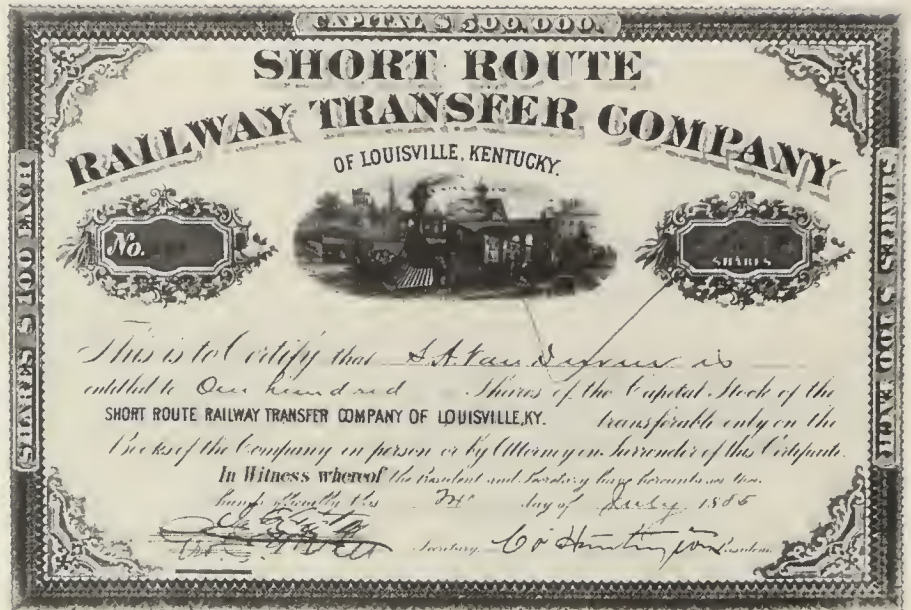 CAPITAL $500,000.
SHORT ROUTE
RAILWAY TRANSFER COMPANY
OF LOUISVILLE, KENTUCKY.
No.
SHARES
SHARES $100 EACH
SHARES $100 EACH
This is to Certify that S. A. Van is
entitled to One hundred Shares of the Capital Stock of the
SHORT ROUTE RAILWAY TRANSFER COMPANY OF LOUISVILLE, KY. transferable only on the
Books of the Company in person or by Attorney on Surrender of this Certificate.
In Witness whereof the President and Secretary have hereunto set their
hands this day of July 1885
Secretary C P Huntington President